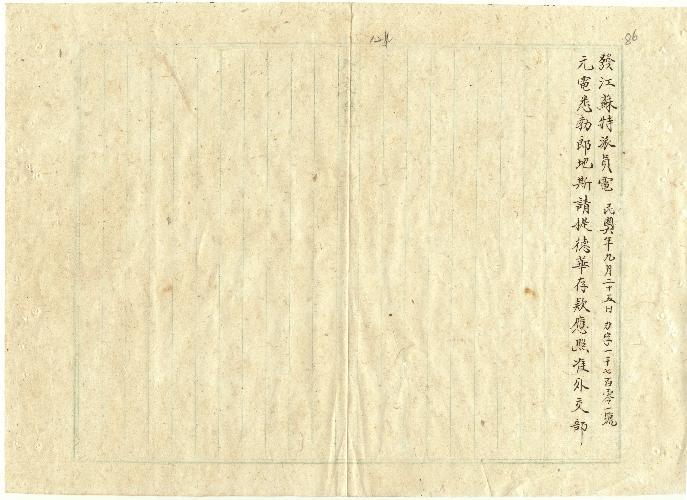 86
發江蘇特派員電 民國 年九月二十五日 力字一千七百零一號
元電悉勃郎地斯請提德華存款應照准外交部